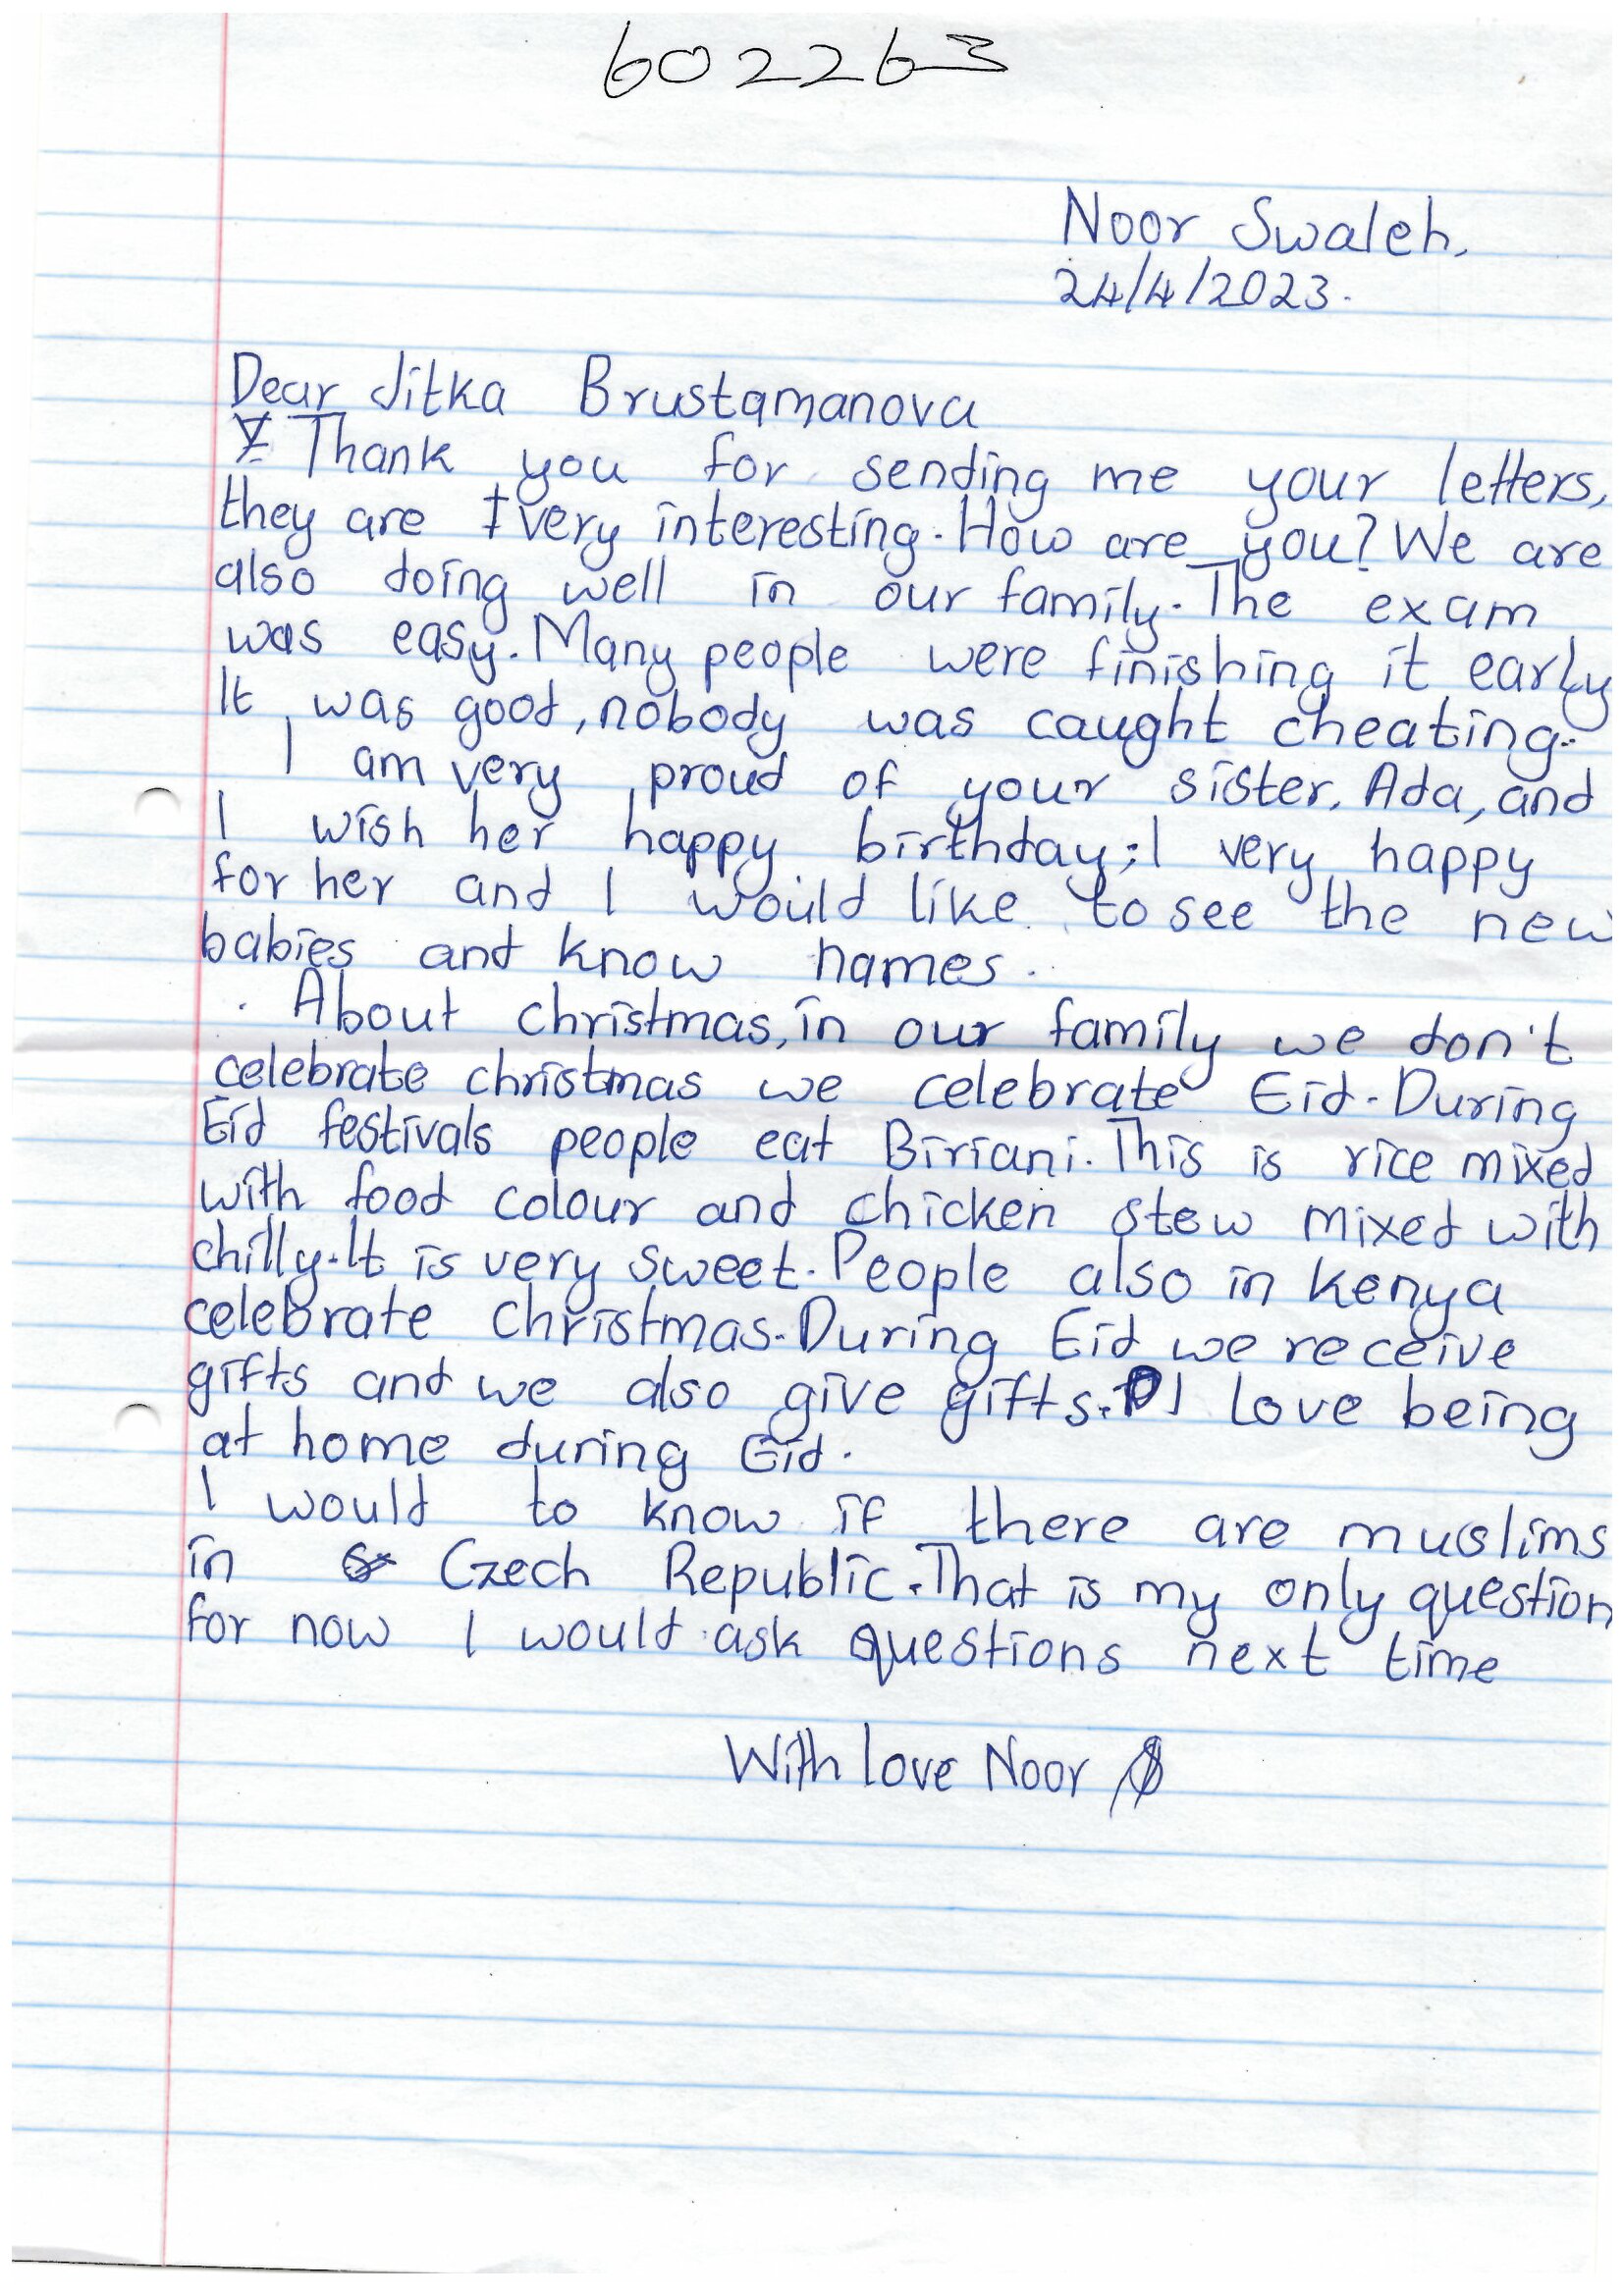 602263
Noor Swaleh,
24/4/2023.
Dear Jitka Brustamanova
Thank you for sending me your letters,
they are very interesting. How are you? We are
also doing well in our family. The exam
was easy. Many people were finishing it early
It was good, nobody was caught cheating.
I am very proud of your sister, Ada, and
I wish her happy birthday; I very happy
for her and I would like to see the new
babies and know names.
About christmas, in our family we don't
celebrate christmas we celebrate Eid. During
Eid festivals people eat Biriani. This is rice mixed
with food colour and chicken stew mixed with
chilly. It is very sweet. People also in Kenya
celebrate christmas. During Eid we receive
gifts and we also give gifts. I love being
at home during Eid.
I would to know if there are muslims
in Czech Republic. That is my only question
for now I would ask questions next time
With love Noor